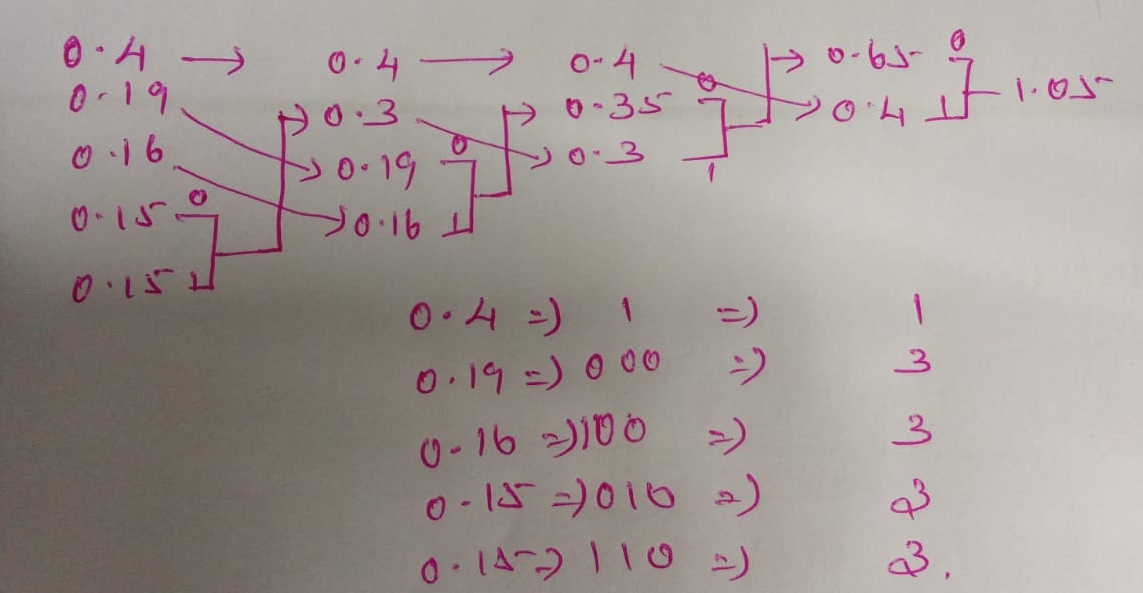 0.4 → 0.4 → 0.4 → 0.65 0
0.19 → 0.3 → 0.35 0 → 0.4 1 1.05
0.16 → 0.19 0 → 0.3 1
0.15 0 → 0.16 1
0.15 1
0.4 => 1 => 1
0.19 => 000 => 3
0.16 => 100 => 3
0.15 => 010 => 3
0.15 => 110 => 3.